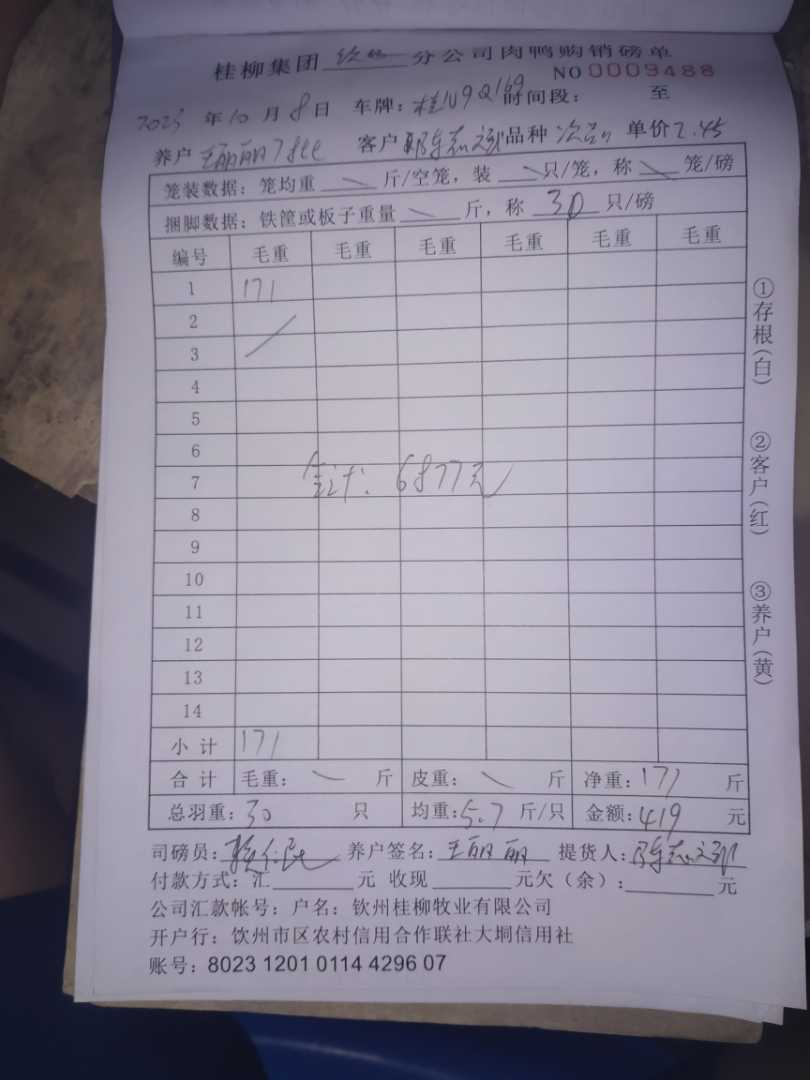 桂柳集团 钦州 分公司肉鸭购销磅单
NO 0009488
2023 年 10 月 8 日 车牌：桂N9Q169 时间段： 至
养户 王丽丽 客户 品种 次品 单价 2.45
笼装数据：笼均重 斤/空笼，装 只/笼，称 笼/磅
捆脚数据：铁筐或板子重量 斤，称 30 只/磅
编号 毛重 毛重 毛重 毛重 毛重 毛重
1 171
2
3
4
5
6
7
合计：6877元
8
9
10
11
12
13
14
小计 171
合计 毛重： 斤 皮重： 斤 净重：171 斤
总羽重：30 只 均重：5.7 斤/只 金额：419 元
司磅员： 养户签名：王丽丽 提货人：
付款方式：汇 元 收现 元欠（余）： 元
公司汇款帐号：户名：钦州桂柳牧业有限公司
开户行：钦州市区农村信用合作联社大垌信用社
账号：8023 1201 0114 4296 07
①存根（白）
②客户（红）
③养户（黄）